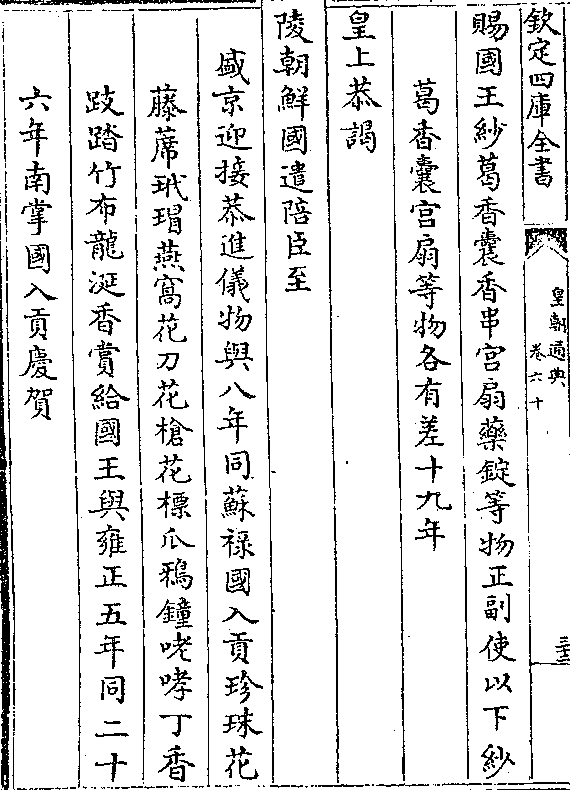 欽定四庫全書
皇朝通典
卷六十
三十三
賜國王紗葛香囊香串宮扇藥錠等物正副使以下紗
葛香囊宮扇等物各有差十九年
皇上恭謁
陵朝鮮國遣陪臣至
盛京迎接恭進儀物與八年同蘇祿國入貢珍珠花
藤蓆玳瑁燕窩花刀花槍花標爪鴉鐘咾哮丁香
跂踏竹布龍涎香賞給國王與雍正五年同二十
六年南掌國入貢慶賀